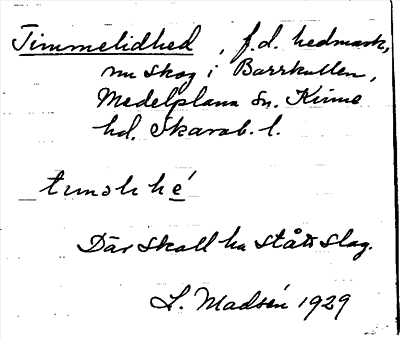 Timmelidhed, f.d. hedmark,
nu skog i Barrkullen,
Medelplana sn. Kinne
hd. Skarab. l.
Där skall ha stått slag.
L. Madsén 1929